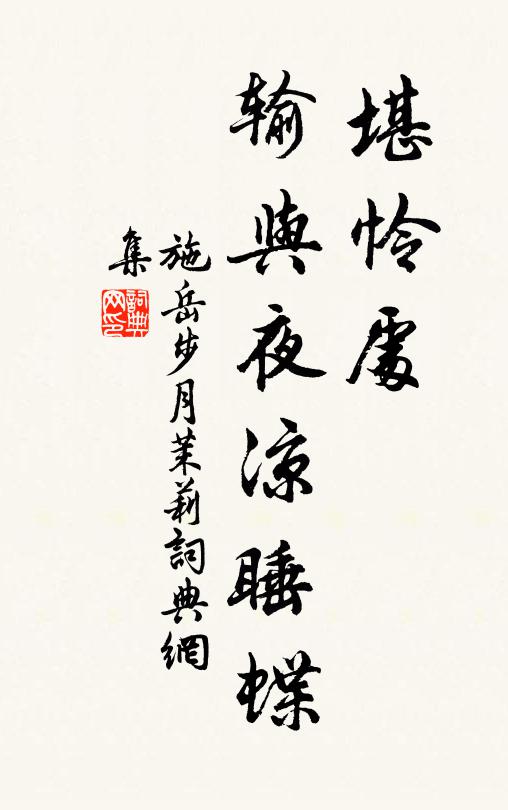 堪怜處
输與夜涼睡蝶
施岳步月茉莉詞典網
集
詞典
网印